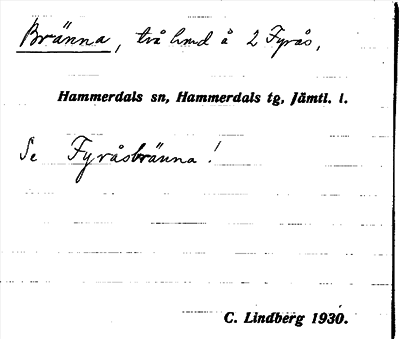 Bränna, två hmd å 2 Fyrås,
Hammerdals sn, Hammerdals tg, Jämtl. l.
Se Fyråsbränna!
C. Lindberg 1930.